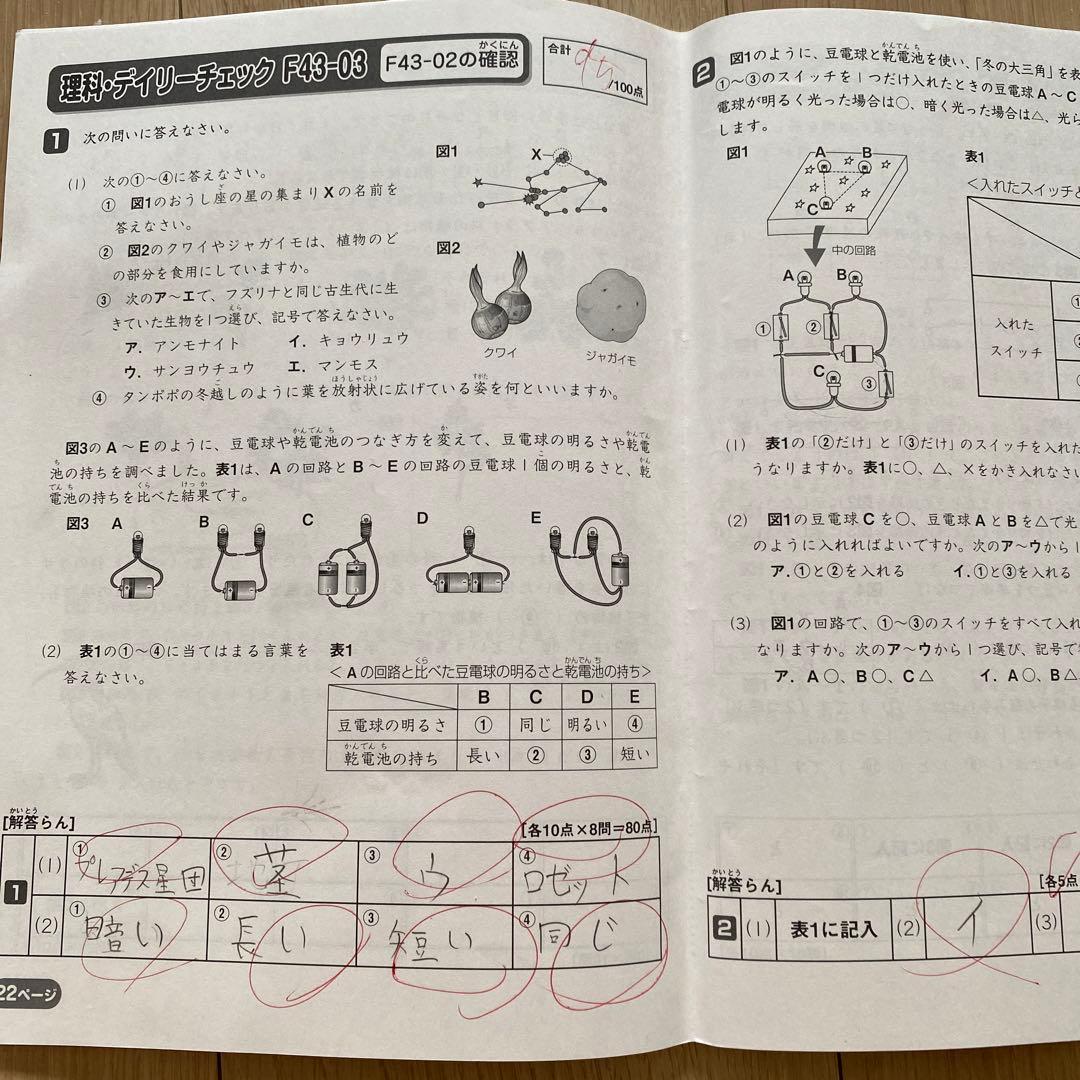 理科・デイリーチェック F43-03
F43-02の確認
かくにん
合計
/100点
1 次の問いに答えなさい。
(1) 次の①~④に答えなさい。
① 図1のおうし座の星の集まりXの名前を
答えなさい。
② 図2のクワイやジャガイモは、植物のど
の部分を食用にしていますか。
③ 次のア~エで、フズリナと同じ古生代に生
きていた生物を1つ選び、記号で答えなさい。
ア. アンモナイト イ. キョウリュウ
ウ. サンヨウチュウ エ. マンモス
④ タンポポの冬越しのように葉を放射状に広げている姿を何といいますか。
図1
X
図2
クワイ
ジャガイモ
図3のA~Eのように、豆電球や乾電池のつなぎ方を変えて、豆電球の明るさや乾電
池の持ちを調べました。表1は、Aの回路とB~Eの回路の豆電球1個の明るさと、乾
電池の持ちを比べた結果です。
図3 A B C D E
(2) 表1の①~④に当てはまる言葉を
答えなさい。
表1
<Aの回路と比べた豆電球の明るさと乾電池の持ち>
B C D E
豆電球の明るさ ① 同じ 明るい ④
乾電池の持ち 長い ② ③ 短い
[解答らん]
[各10点×8問=80点]
1
(1) ① プレアデス星団 ② 茎 ③ ウ ④ ロゼット
(2) ① 暗い ② 長い ③ 短い ④ 同じ
22ページ
2 図1のように、豆電球と乾電池を使い、「冬の大三角」を表
①~③のスイッチを1つだけ入れたときの豆電球A~C
電球が明るく光った場合は○、暗く光った場合は△、光ら
します。
図1
A B
C
中の回路
A B
① ②
C ③
表1
<入れたスイッチと
入れた
スイッチ
(1) 表1の「②だけ」と「③だけ」のスイッチを入れた
うなりますか。表1に○、△、×をかき入れなさい
(2) 図1の豆電球Cを○、豆電球AとBを△で光
のように入れればよいですか。次のア~ウから1
ア.①と②を入れる イ.①と③を入れる
(3) 図1の回路で、①~③のスイッチをすべて入れ
なりますか。次のア~ウから1つ選び、記号で
ア. A○、B○、C△ イ. A○、B△
[解答らん]
[各5点
2 (1) 表1に記入 (2) イ (3)